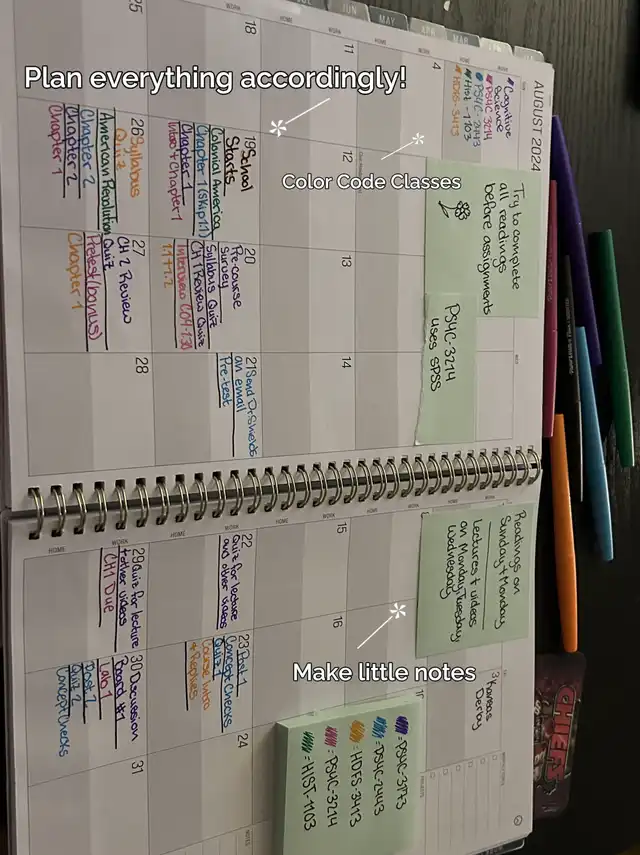 Plan everything accordingly!
Color Code Classes
Make little notes
AUGUST 2024
JUN
MAY
APR
MAR
Cognitive
Science
PSYC-3214
PSYC-2443
HIST-1103
HDFS-3413
Try to complete
all readings
before assignments
PSYC-3214
uses SPSS
Readings on
Sunday + Monday
lectures + videos
on Monday/Tuesday
Wednesday
3 Kansas
Derby
4
11
12
13
14
15
16
18
19 School
Starts
Colonial America
Chapter 1 (skip 1.1)
Chapter 1
Intro + Chapter 1
20 Pre-course
Survey
Syllabus Quiz
CH 1 Review Quiz
21 Send Dr. Shields
an email
Pre-test
22
Quiz for lecture
and other videos
23 Post 1
Quiz 1
Concept Checks
Course Intro
+ Replies
24
25
26 Syllabus
Quiz
American Revolution
Chapter 2
Chapter 2
Chapter 1
27
CH 2 Review
Quiz
Pretest (bonus)
Chapter 1
28
29 Quiz for lecture
+ other videos
CH 1 Due
30 Discussion
Board #1
Lab 1
Post 2
Quiz 2
Concept Checks
31
= PSYC-3173
= PSYC-2443
= HDFS-3413
= PSYC-3214
= HIST-1103
CHIEFS
WORK
HOME
NOTES